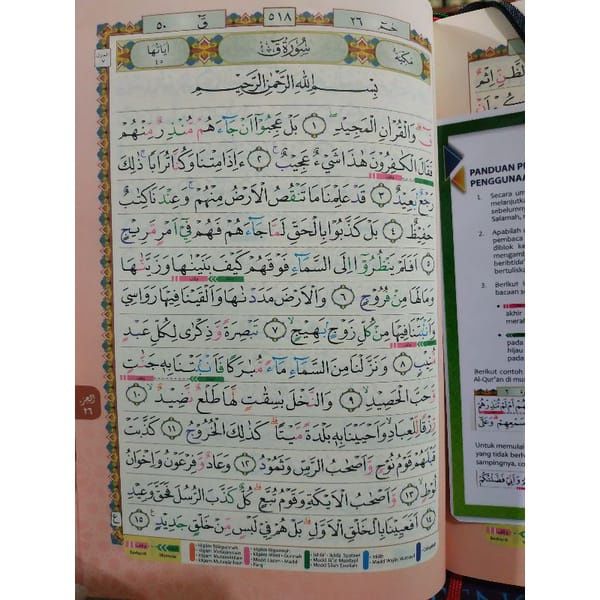 حٰمٓ ٢٦ ٥١٨ قٓ ٥٠
مَكِّيَّة سُوْرَةُ قٓ اٰيَاتُهَا ٤٥
بِسْمِ اللّٰهِ الرَّحْمٰنِ الرَّحِيْمِ
قٓ ۗ وَالْقُرْاٰنِ الْمَجِيْدِ ۖ ١ بَلْ عَجِبُوْٓا اَنْ جَاۤءَهُمْ مُّنْذِرٌ مِّنْهُمْ
فَقَالَ الْكٰفِرُوْنَ هٰذَا شَيْءٌ عَجِيْبٌ ۚ ٢ ءَاِذَا مِتْنَا وَكُنَّا تُرَابًا ۚ ذٰلِكَ
رَجْعٌۢ بَعِيْدٌ ٣ قَدْ عَلِمْنَا مَا تَنْقُصُ الْاَرْضُ مِنْهُمْ ۚ وَعِنْدَنَا كِتٰبٌ
حَفِيْظٌ ٤ بَلْ كَذَّبُوْا بِالْحَقِّ لَمَّا جَاۤءَهُمْ فَهُمْ فِيْٓ اَمْرٍ مَّرِيْجٍ
٥ اَفَلَمْ يَنْظُرُوْٓا اِلَى السَّمَاۤءِ فَوْقَهُمْ كَيْفَ بَنَيْنٰهَا وَزَيَّنّٰهَا
وَمَا لَهَا مِنْ فُرُوْجٍ ٦ وَالْاَرْضَ مَدَدْنٰهَا وَاَلْقَيْنَا فِيْهَا رَوَاسِيَ
وَاَنْۢبَتْنَا فِيْهَا مِنْ كُلِّ زَوْجٍۢ بَهِيْجٍ ۙ ٧ تَبْصِرَةً وَّذِكْرٰى لِكُلِّ عَبْدٍ
مُّنِيْبٍ ٨ وَنَزَّلْنَا مِنَ السَّمَاۤءِ مَاۤءً مُّبٰرَكًا فَاَنْۢبَتْنَا بِهٖ جَنّٰتٍ
وَّحَبَّ الْحَصِيْدِ ۙ ٩ وَالنَّخْلَ بٰسِقٰتٍ لَّهَا طَلْعٌ نَّضِيْدٌ ۙ ١٠
رِّزْقًا لِّلْعِبَادِ ۙ وَاَحْيَيْنَا بِهٖ بَلْدَةً مَّيْتًا ۗ كَذٰلِكَ الْخُرُوْجُ ١١ كَذَّبَتْ
قَبْلَهُمْ قَوْمُ نُوْحٍ وَّاَصْحٰبُ الرَّسِّ وَثَمُوْدُ ۙ ١٢ وَعَادٌ وَّفِرْعَوْنُ وَاِخْوَانُ
لُوْطٍ ۙ ١٣ وَّاَصْحٰبُ الْاَيْكَةِ وَقَوْمُ تُبَّعٍ ۗ كُلٌّ كَذَّبَ الرُّسُلَ فَحَقَّ وَعِيْدِ
١٤ اَفَعَيِيْنَا بِالْخَلْقِ الْاَوَّلِ ۗ بَلْ هُمْ فِيْ لَبْسٍ مِّنْ خَلْقٍ جَدِيْدٍ ۚ ١٥
الجزء
٢٦
PANDUAN
PENGGUNAA
1. Secara um
melanjutka
sebelumny
Salamah,
2. Apabilah
pembaca
diblok ka
mengamb
beribtida
bertuliska
3. Berikut
bacaan s
akhir
meral
pada
hijau
pada
Berikut contoh
Al-Qur'an di mu
Untuk memulai
yang tidak berv
sampingnya, co